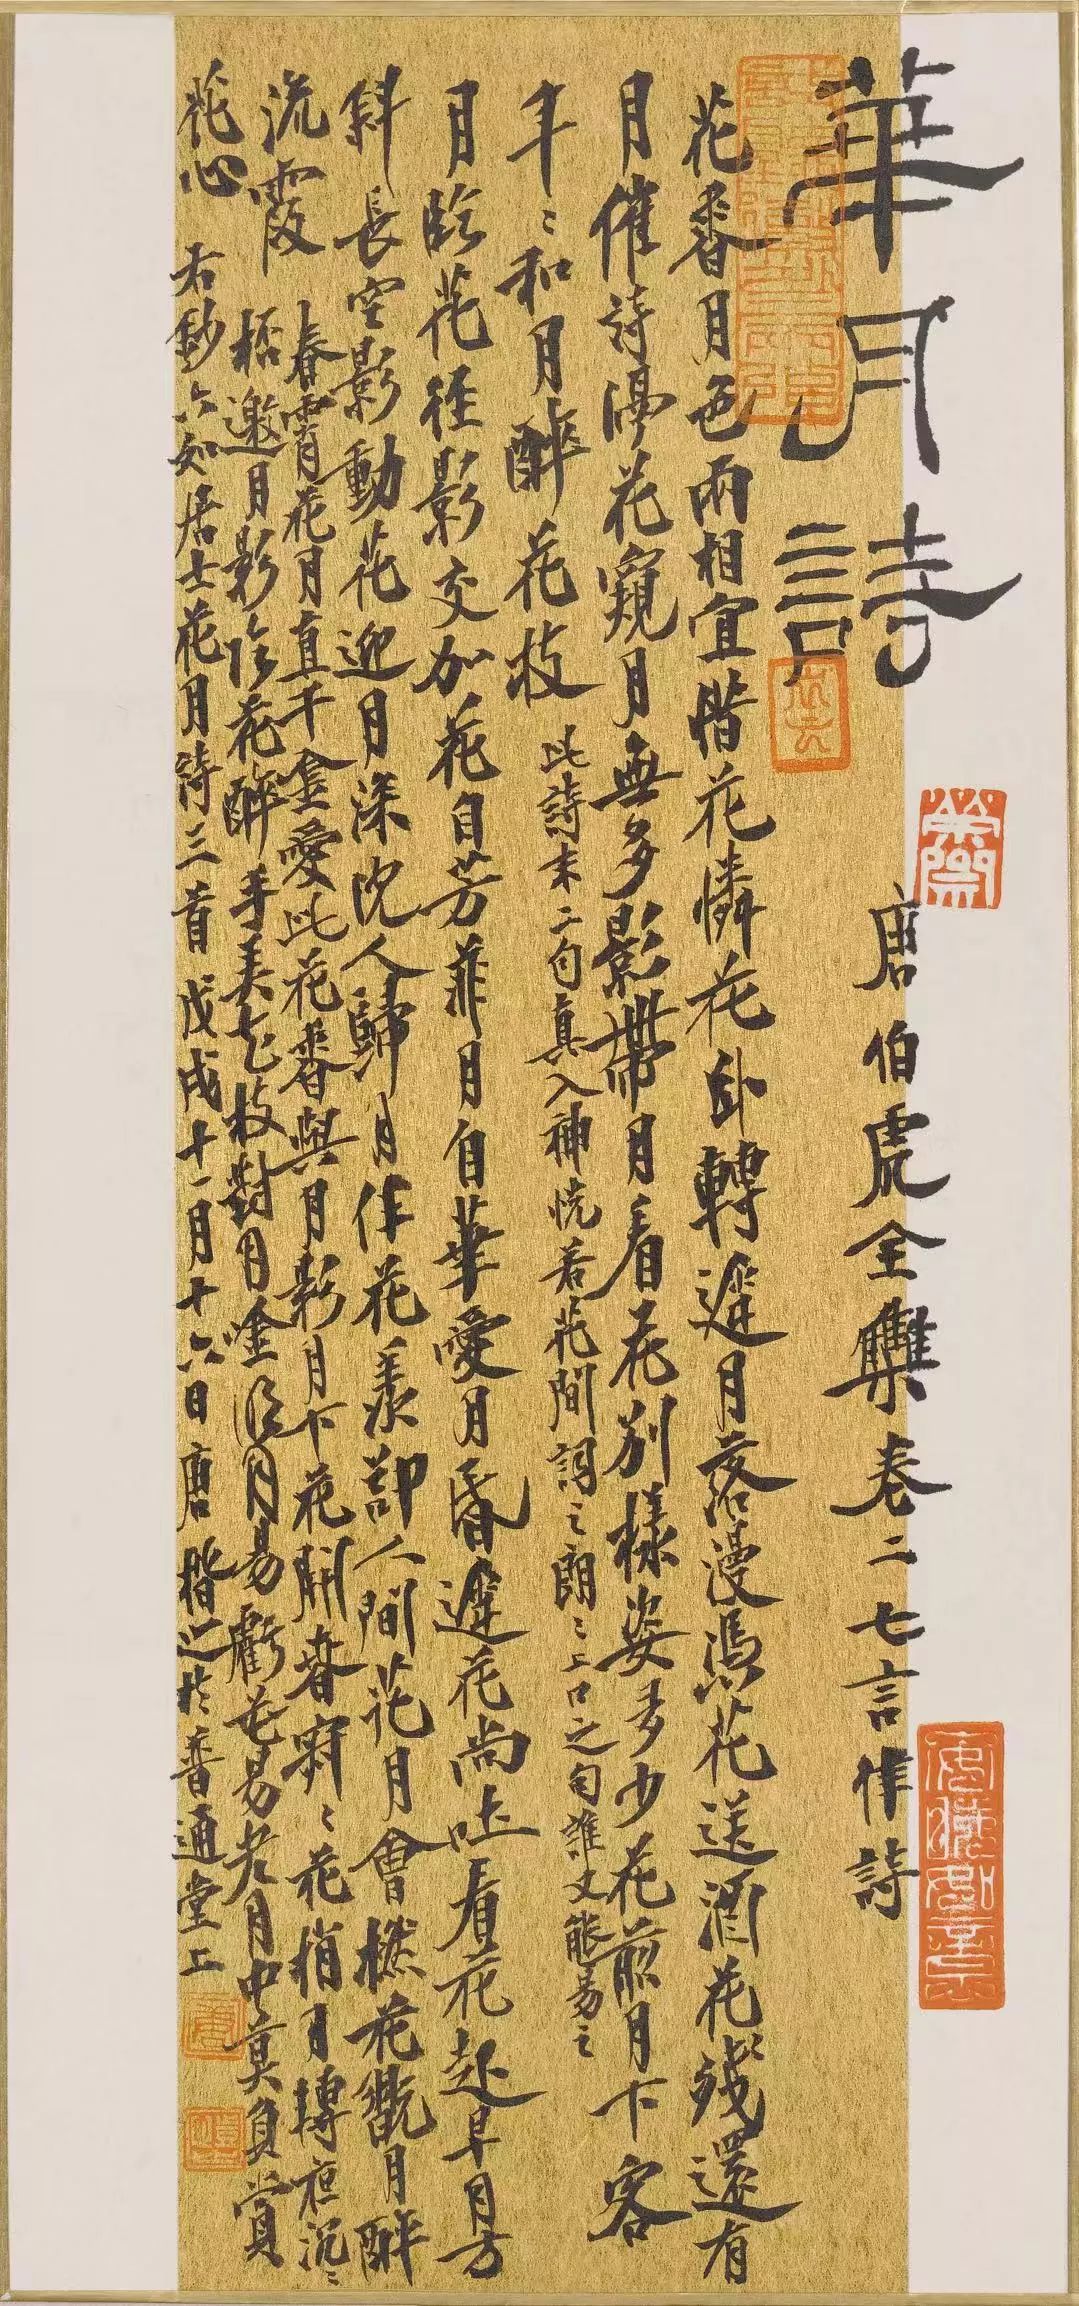 華月詩
三 唐伯虎全集卷二七言律詩
花香月色兩相宜惜花憐花臥轉遲月落漫馮花送酒花殘還有
月催詩隔花窺月無多影帶月看花別樣姿多少花前月下客
年〻和月醉花枝 此詩末二句真入神恍若花間詞之朗〻上口之句誰又能易之
月臨花徑影交加花自芳菲月自華愛月昏遲花尚吐看花起早月方
斜長空影動花迎月深院人歸月伴花羨卻人間花月會撚花翫月醉
流霞 春宵花月直千金愛此花香與月影月下花開春寂〻花梢月轉夜沉〻
杯邀月影臨花醉手美花枝對月唫但月易虧花易老月中莫負賞
花心 右鈔六如居士花月詩三首戊戌十一月十六日唐楷之於普通堂上